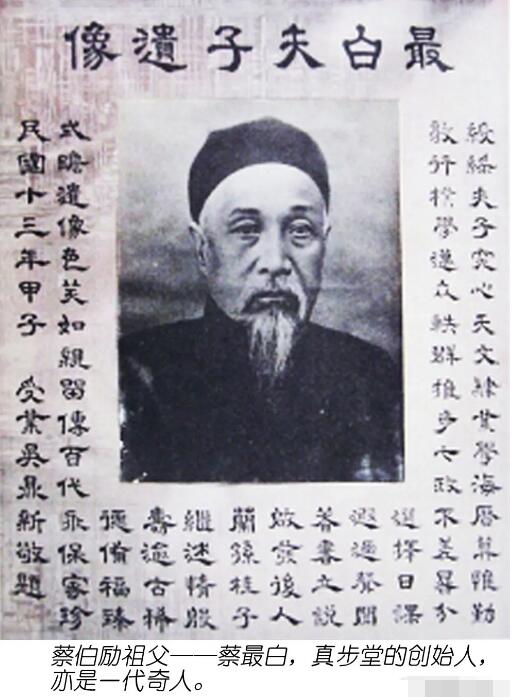 最白夫子遺像
夫子究心天文肄業學海曆算惟勤
敦行樸學邁众軼群推步七政不差晷分
選擇日課
遐邇聲聞
著書立說
啟發後人
蘭孫桂子
繼述情殷
壽逾古稀
德備福臻
式瞻遺像色笑如親留傳百代永保家珍
民國十三年甲子 受業吳鼎新敬題
蔡伯励祖父——蔡最白，真步堂的创始人，
亦是一代奇人。